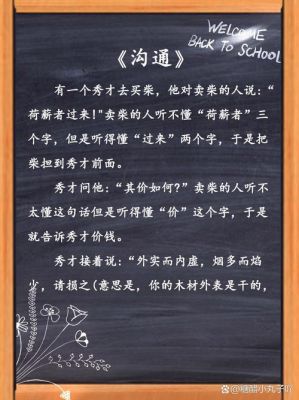 WELCOME
BACK TO SCHOOL
《沟通》
有一个秀才去买柴，他对卖柴的人说：“
荷薪者过来！"卖柴的人听不懂“荷薪者”三
个字，但是听得懂“过来”两个字，于是把
柴担到秀才前面。
秀才问他：“其价如何？”卖柴的人听不
太懂这句话但是听得懂“价”这个字，于是
就告诉秀才价钱。
秀才接着说：“外实而内虚，烟多而焰
少，请损之(意思是，你的木材外表是干的，
@糖醋小丸子吖